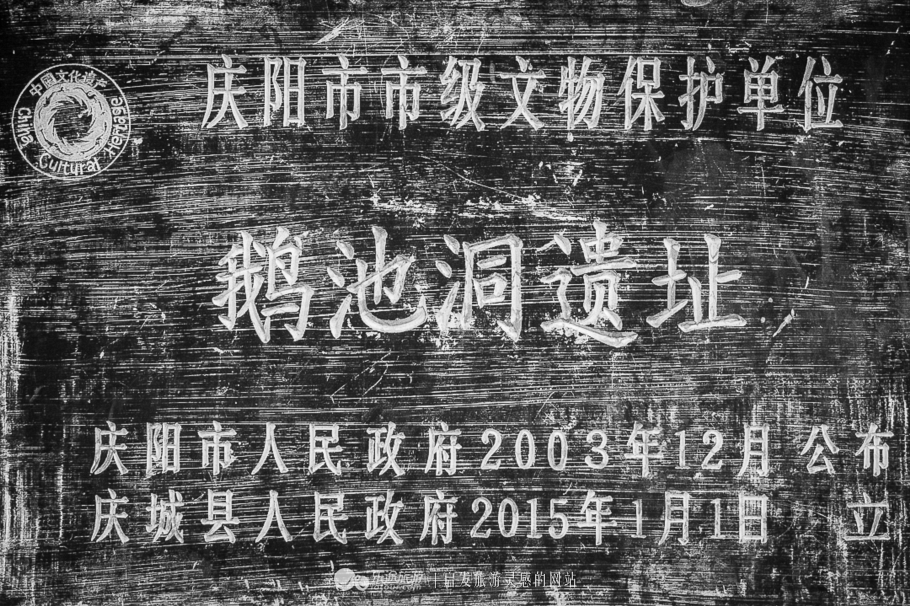 庆阳市市级文物保护单位
中国文化遗产
China Cultural Heritage
鹅池洞遗址
庆阳市人民政府2003年12月公布
庆城县人民政府2015年1月1日 立
启发旅游灵感的网站